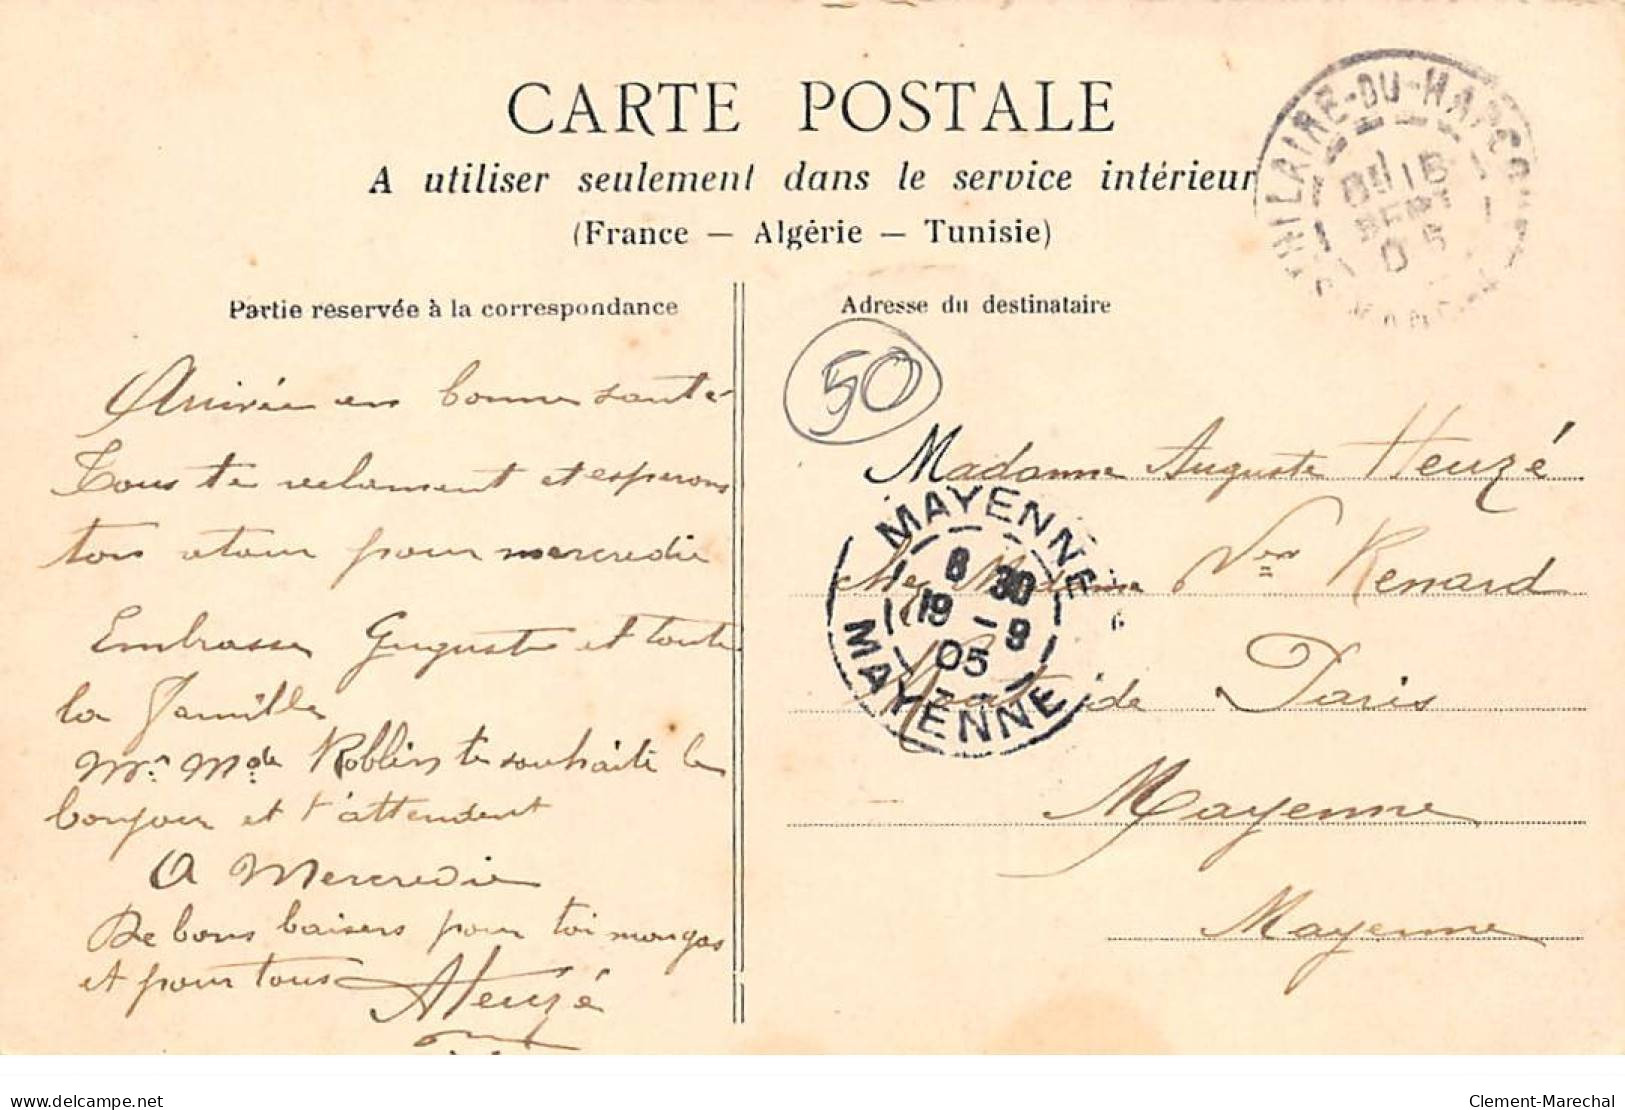 CARTE POSTALE
A utiliser seulement dans le service intérieur
(France — Algérie — Tunisie)
HILAIRE-DU-HARCO
SEPT
05
Partie reservée à la correspondance
Arrivée en bonne santé
Tous te reclament et esperons
ton retour pour mercredie
Embrasse Auguste et toute
la famille
Mr. Mde Roblin te souhaite le
bonjour et t'attendent
A Mercredie
De bons baisers pour toi mon gas
et pour tous AHeuzé
Adresse du destinataire
50
Madame Auguste Heuzé
Chez Madame Vve Renard
Route de Paris
Mayenne
Mayenne
MAYENNE
8 30
19 - 9
05
MAYENNE
www.delcampe.net
Clement-Marechal